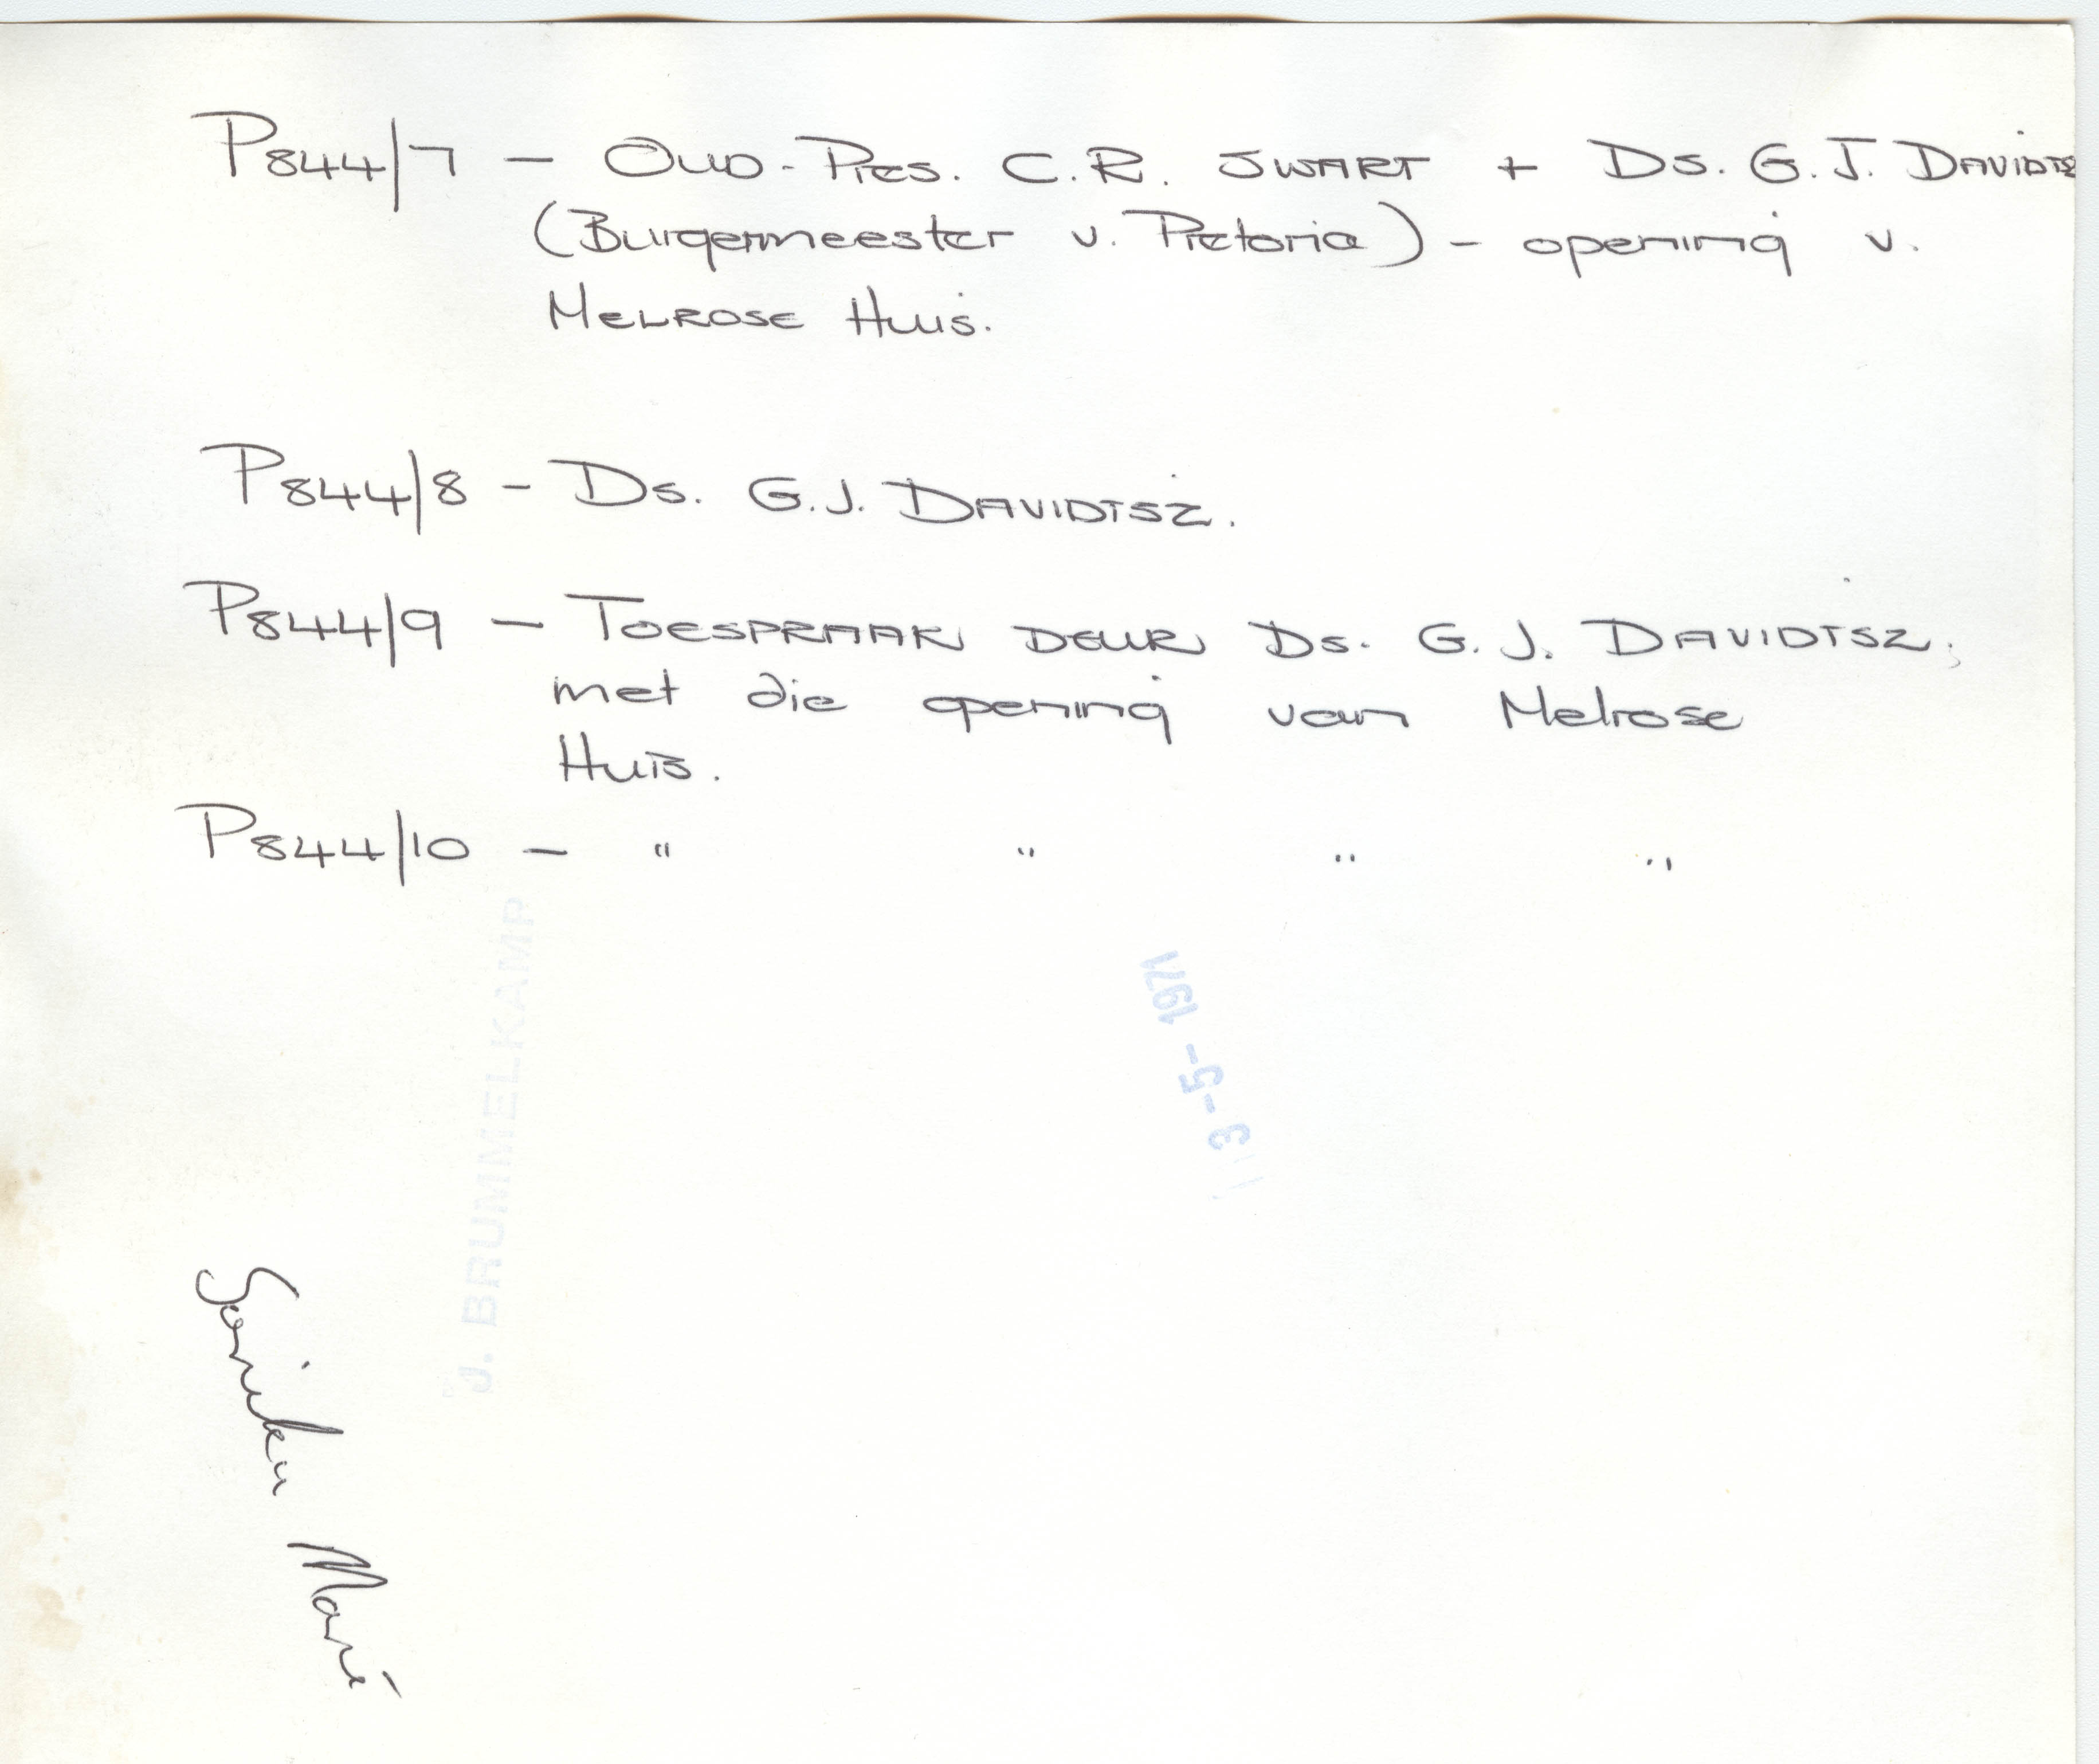 P844/7 – Oud-Pres. C.R. SWART + Ds. G.J. DAVIDTSZ
(Burgermeester v. Pretoria) – opening v.
MELROSE Huis.
P844/8 – Ds. G.J. DAVIDTSZ.
P844/9 – TOESPRAAK DEUR Ds. G.J. DAVIDTSZ,
met die opening van Melrose
Huis.
P844/10 – " " " "
J. BRUMMELKAMP
3-5-1971
Marí